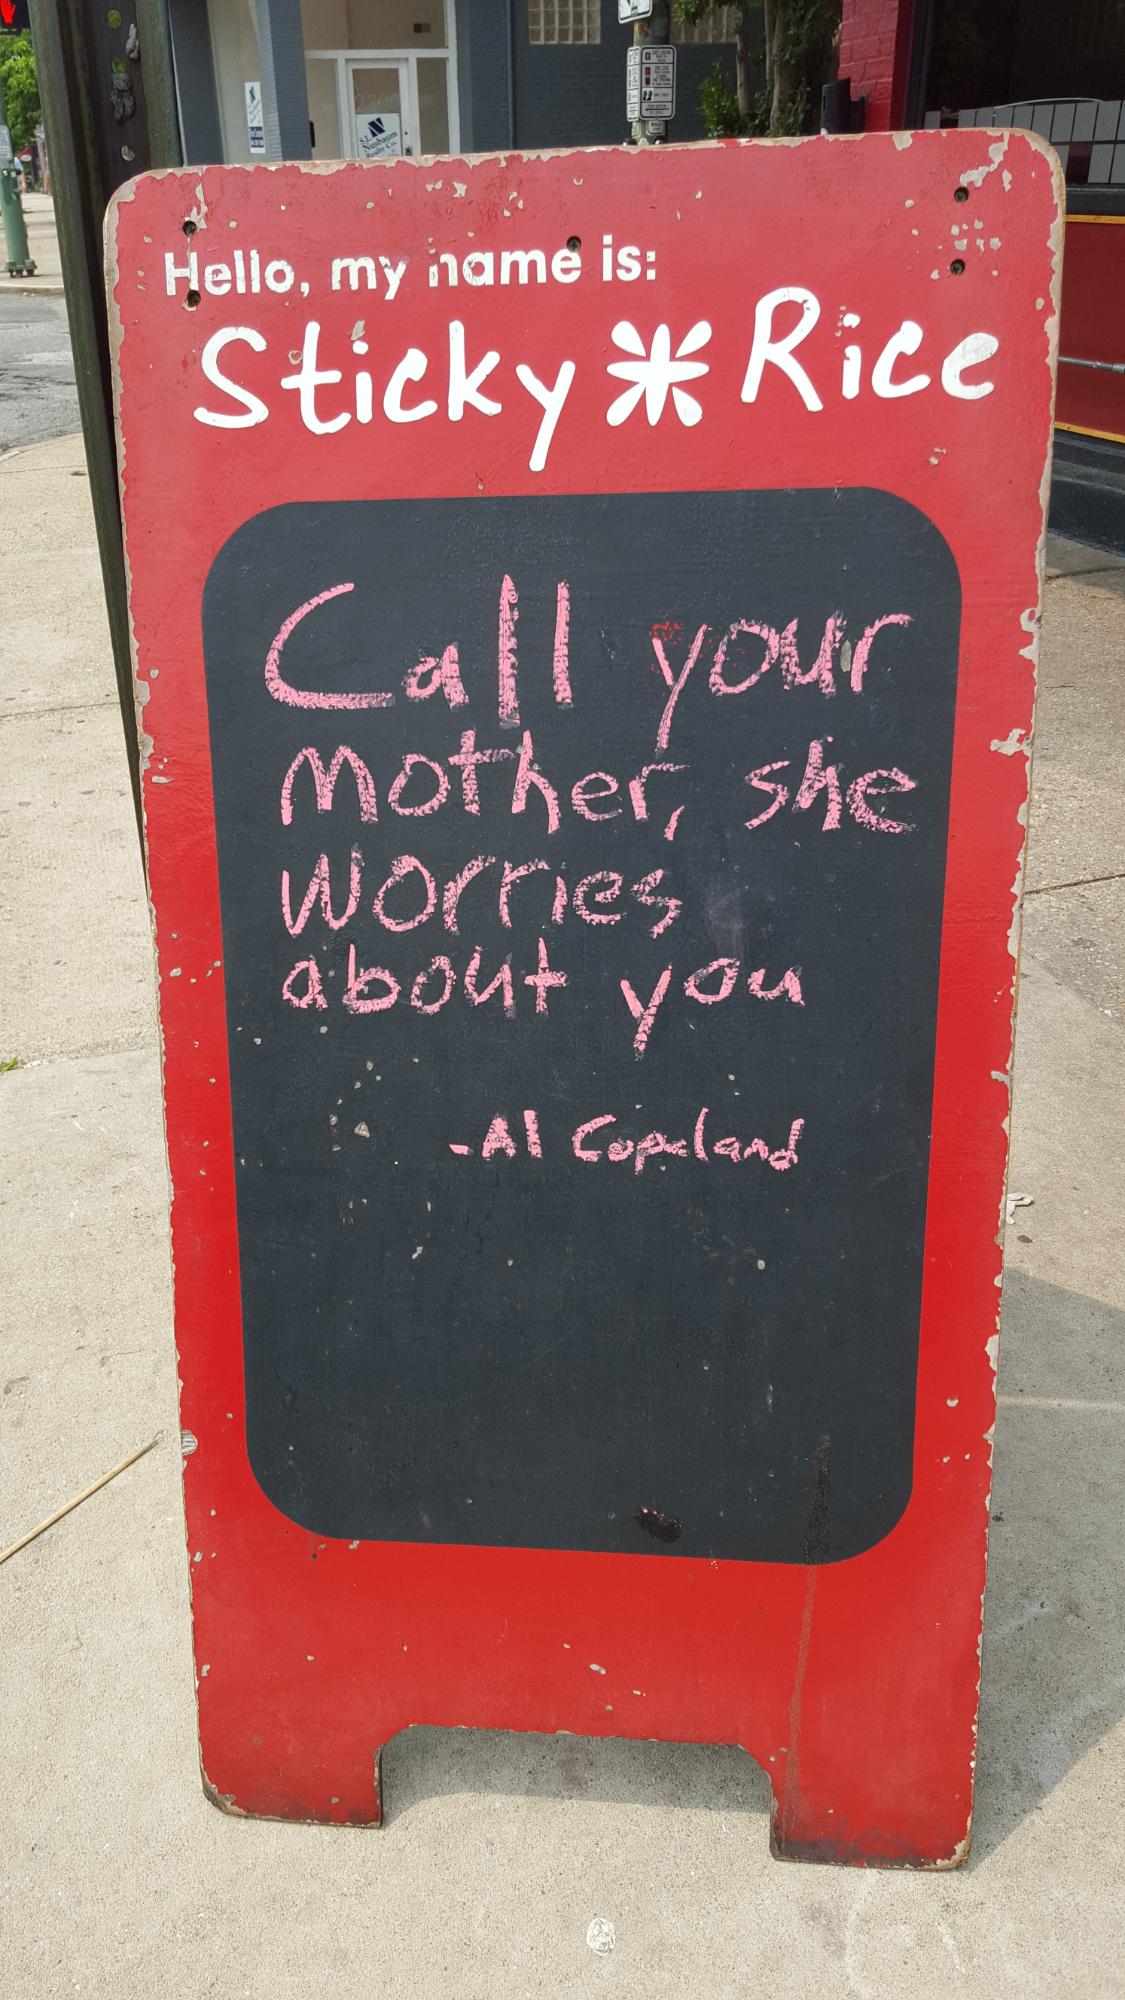 S.L.
Nusbaum
Realty Co.
Hello, my name is:
Sticky Rice
Call your
mother, she
worries
about you
-Al Copeland